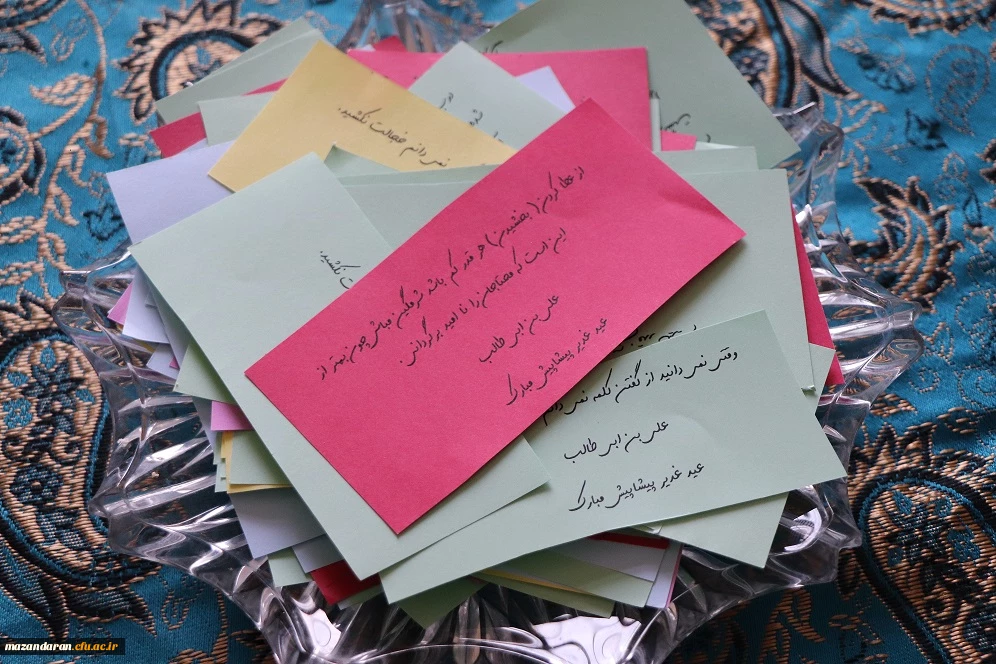 نمی دانم خجالت نکشید.
ت نکشید.
از عطا کردن (بخشیدن) هر قدر کم باشد شرمگین مباش چون بهتر از
این است که محتاجان را نا امید برگردانی
علی بن ابی طالب
عید غدیر پیشاپیش مبارک
وقتی نمی دانید از گفتن کلمه نمی دانم
علی بن ابی طالب
عید غدیر پیشاپیش مبارک
mazandaran.cfu.ac.ir